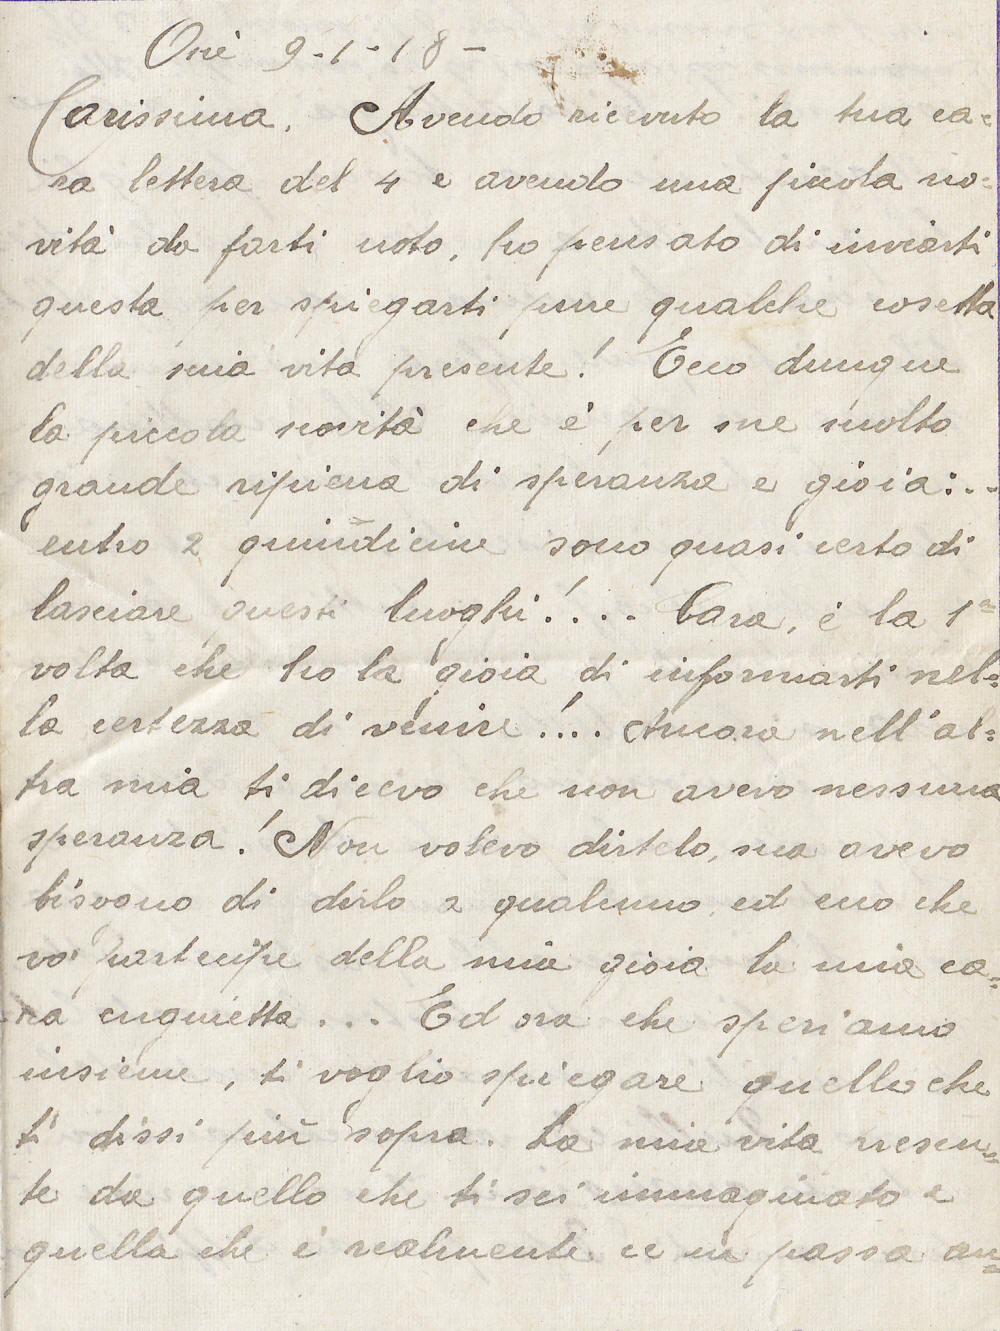 Onè 9-1-18-
Carissima. Avendo ricevuto la tua ca=
ra lettera del 4 e avendo una piccola no=
vità da farti noto, ho pensato di inviarti
questa per spiegarti pure qualche cosetta
della mia vita presente! Ecco dunque
la piccola novità che è per me molto
grande ripiena di speranza e gioia:..
entro 2 quindicine sono quasi certo di
lasciare questi luoghi!... Cara, é la 1ª
volta che ho la gioia di informarti nel=
la certezza di venire!... Ancora nell'al=
tra mia ti dicevo che non avevo nessuna
speranza! Non volevo dirtelo, ma avevo
bisogno di dirlo a qualcuno, ed ecco che
fo partecipe della mia gioia la mia ca=
ra enquietta... Ed ora che speriamo
insieme, ti voglio spiegare quello che
ti dissi più sopra. La mia vita presen=
te da quello che ti sei immaginato e
quella che è realmente ce ne passa an=